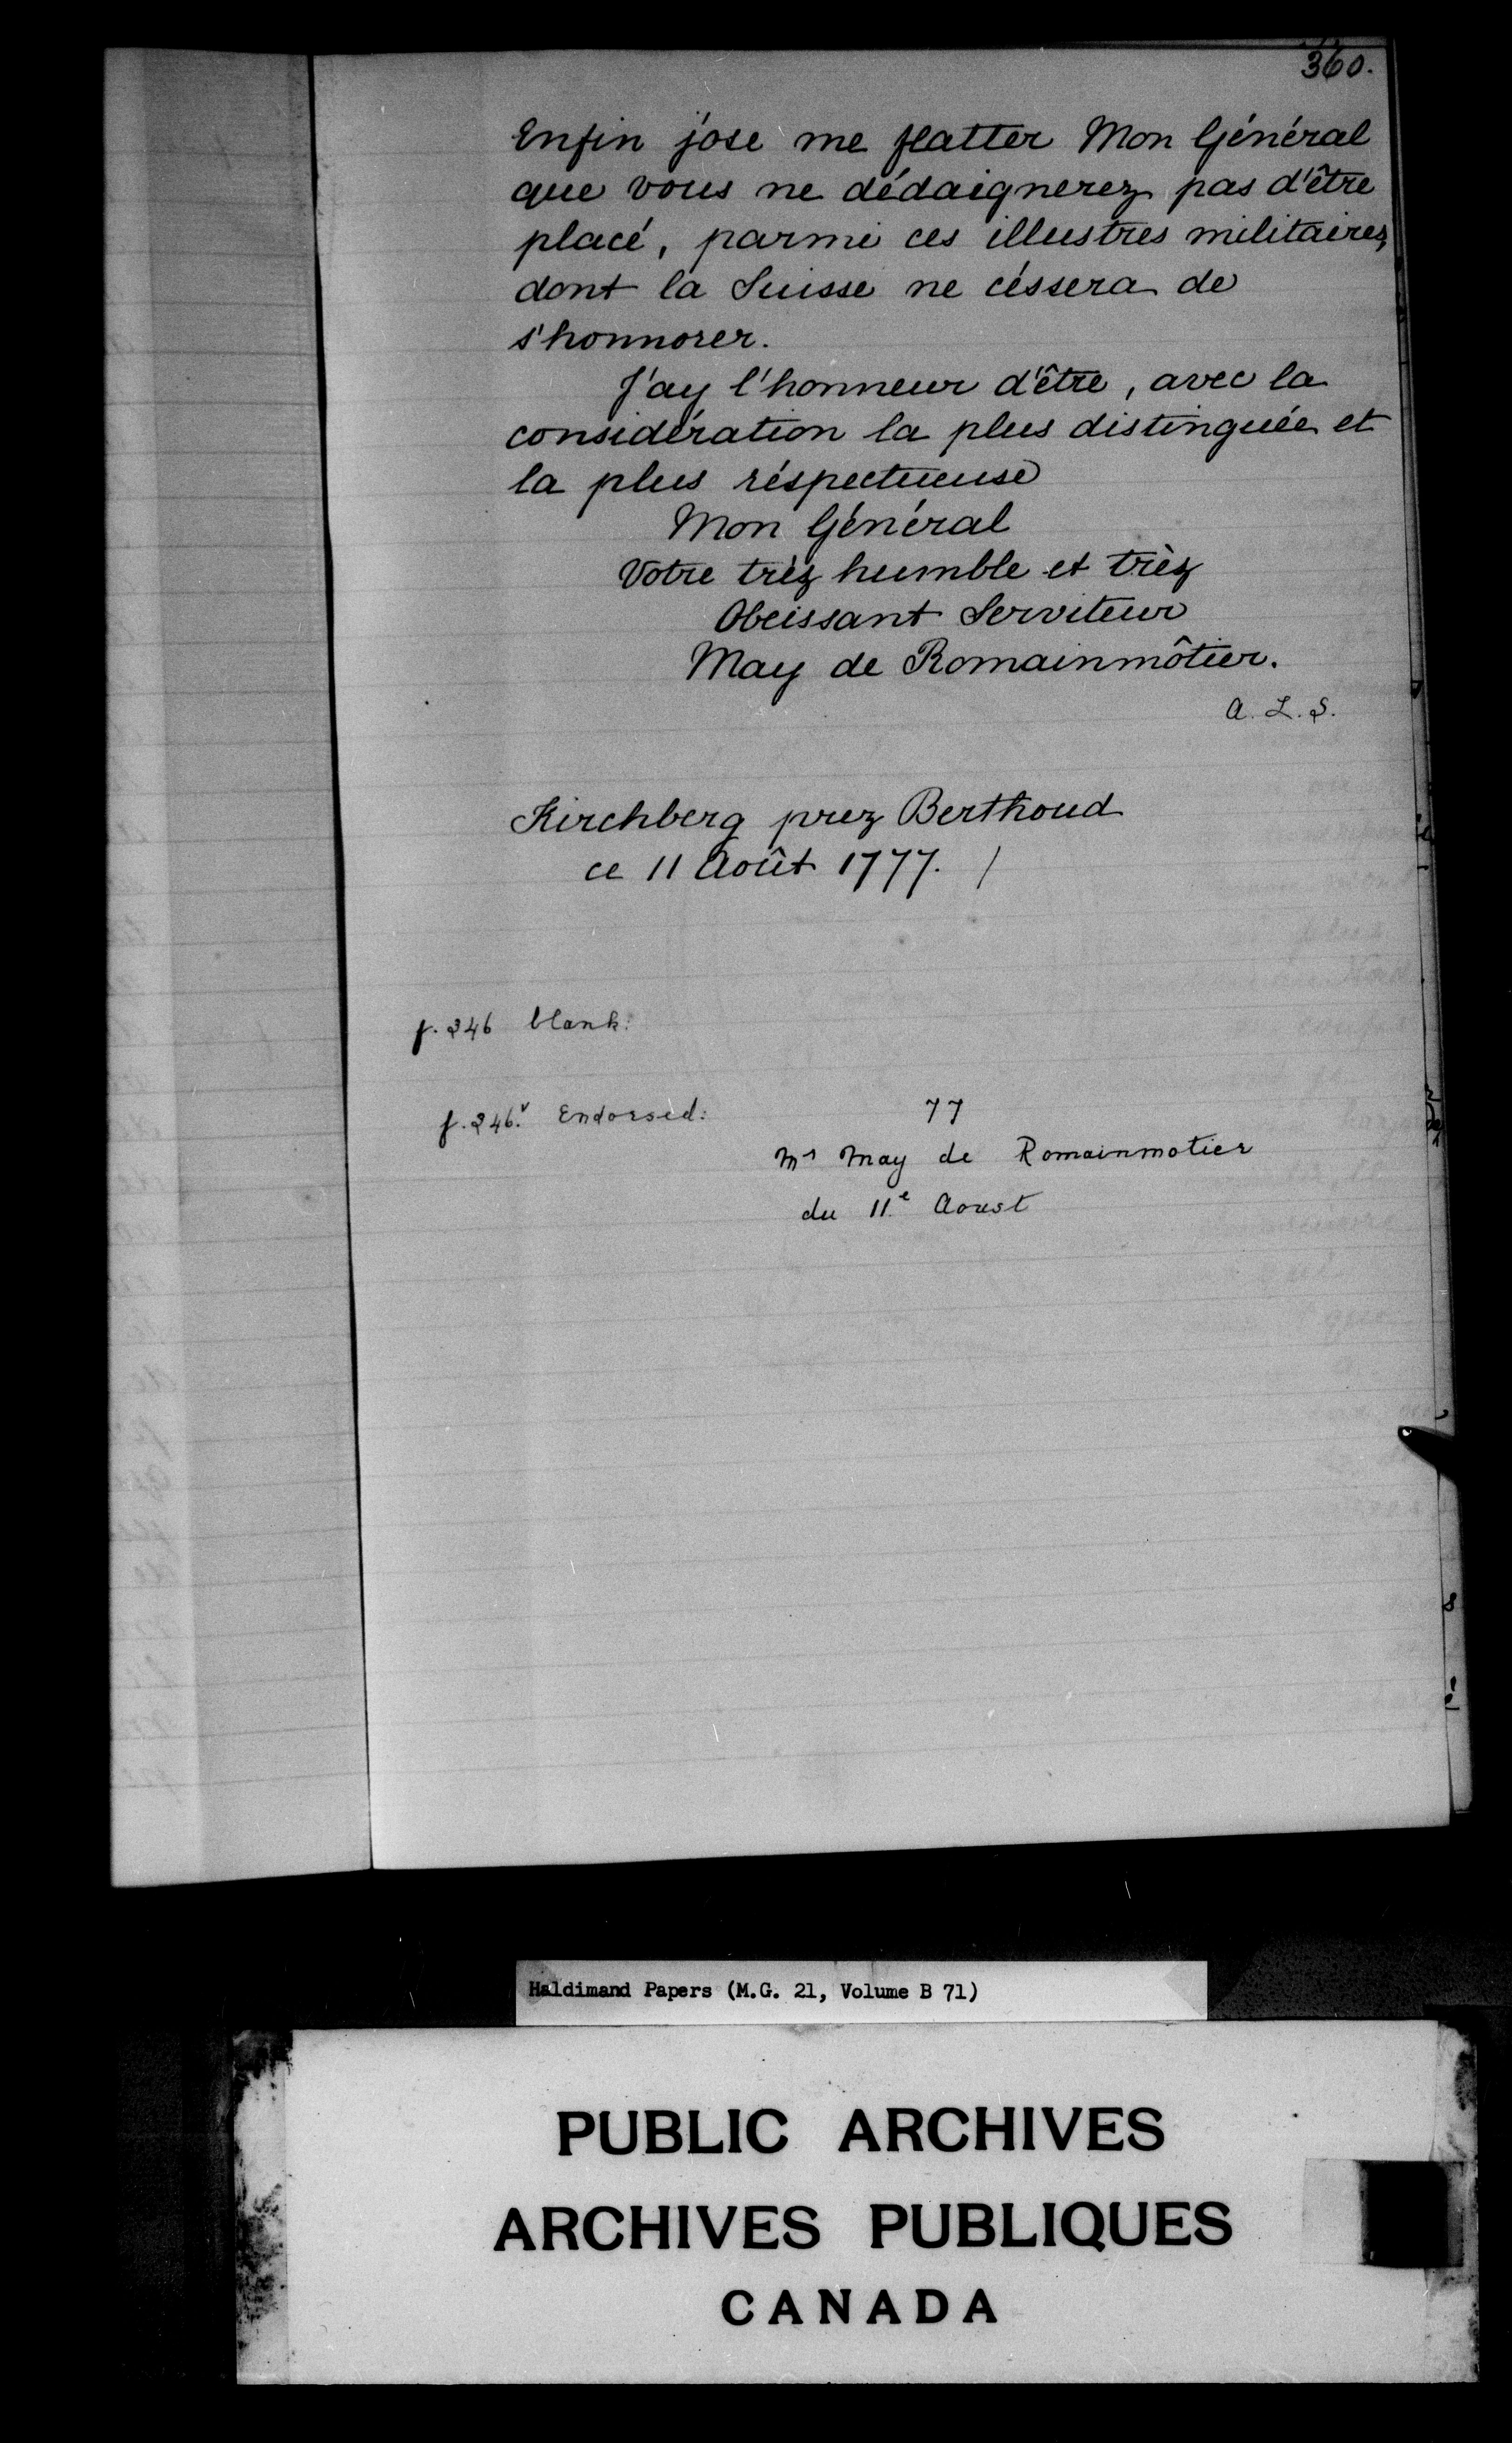 360.
Enfin j'ose me flatter Mon Général
que vous ne dédaignerez pas d'être
placé, parmi ces illustres militaires,
dont la Suisse ne céssera de
s'honnorer.
J'ay l'honneur d'être, avec la
considération la plus distinguée et
la plus réspectueuse
Mon Général
Votre trèz humble et trèz
Obeissant Serviteur
May de Romainmôtier.
A. L. S.
Kirchberg prez Berthoud
ce 11 Août 1777. /
f. 246 blank.
f. 246.v Endorsed: 77
Mr May de Romainmotier
du 11e Aoust
Haldimand Papers (M.G. 21, Volume B 71)
PUBLIC ARCHIVES
ARCHIVES PUBLIQUES
CANADA